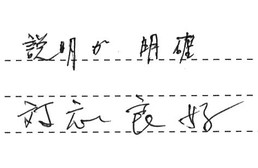 説明が 明確
対応良好